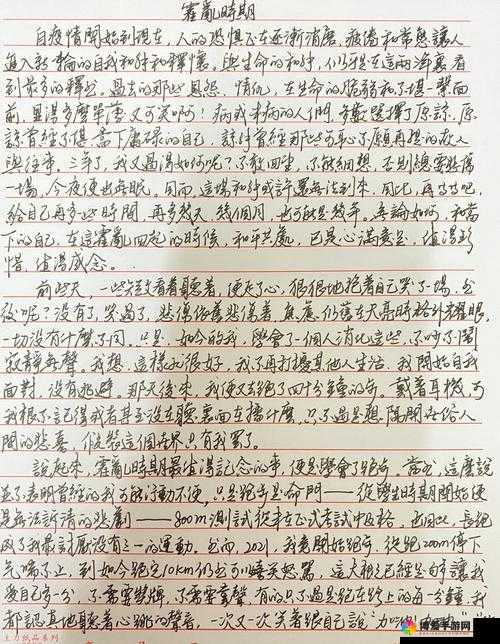 霍亂時期
自疫情開始到現在，人的恐惧正在逐漸消磨，疲倦和常態讓人
進入新一輪的自我和解和釋懷。與生命的和解，人們彷彿在這兩年裏看
到最多的釋然。過去的那些恩怨、情仇，在生命的脆弱和不堪一擊面
前，顯得多麼單薄又可笑啊！病或未病的人們，多數選擇了原諒，原
諒曾經不堪、當下庸碌的自己，諒解曾經那些可
與往事。三年了，我又過得如何呢？不敢回望，不能細想，否則總要悲傷
一場，今夜便也無眠。因而，這場和解或許遲無法到來。因此，再等等吧，
給自己再多些時間，再多幾天、幾個月，也可能是幾年。無論如何，和當
下的自己，在這霍亂四起的時候，和平共處，已是心滿意足，值得珍
惜，值得感念。
前些天，一些文字看着聽着，便走了心，狠狠地抱着自己哭了一場，然
後呢？沒有了，哭過了，悲傷依舊悲傷着，無處
一切沒有什麼不同。只是，如今的我，學會了一個人消化這些，不吵不鬧，
寂靜無聲。我想，這樣也很好，我不再打擾其他人生活，我開始自我
面對，沒有逃避。那天後來，我便又去跑了四十分鐘的步。戴着耳機，可
我根本不記得或者甚至沒在聽裏面在播什麼，只不過是想隔開世俗人
間的悲喜，假裝這個世界只有我罷了。
說起來，霍亂時期最值得記念的事，便是學會了跑步。當然，這麼說
並不表明曾經的我可能行動不便，只是跑步是命門——從學生時期開始便
是無法訴清的悲劇——800m測試從未在正式考試中及格，也因此，長跑
成了我最討厭沒有之一的運動。然而，2021，我竟開始跑步，從跑200m停下
氣喘不止，到如今跑完10km仍然可以嬉笑怒罵，這大概已經足夠讓我
愛自己多一分，不需要獎牌，不需要掌聲，有的只不過是跑在路上的每一分鐘，我
都認真地聽着心跳的聲音，一次又一次笑着跟自己說
博爱手游网